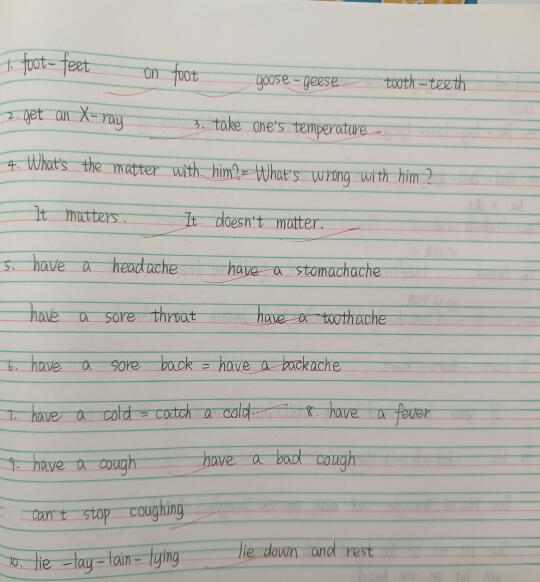 1. foot-feet on foot goose-geese tooth-teeth
2. get an X-ray 3. take one's temperature
4. What's the matter with him? = What's wrong with him?
It matters. It doesn't matter.
5. have a headache have a stomachache
have a sore throat have a toothache
6. have a sore back = have a backache
7. have a cold = catch a cold 8. have a fever
9. have a cough have a bad cough
can't stop coughing
10. lie -lay-lain-lying lie down and rest